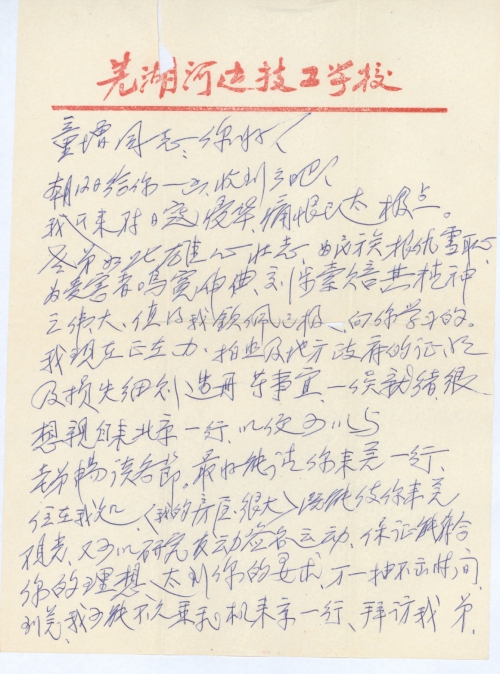 芜湖河边技工学校
童增同志：你好！
朝日给你一一收到了吧！
我一来对日寇侵华，痛恨已达极点。
老弟如此雄心壮志，为民族报仇雪耻，
为受害者鸣冤伸曲，对索赔其精神
之伟大，值得我钦佩之极，向你学习的。
我现在正在力，拍照及地方政府的证明
及损失细则造册等事宜，一俟就绪，很
想亲自来北京一行，以便可以与
老弟畅谈各节。最好能请你来芜一行，
住在我处，（我的房屋很大）既能使你来芜
观光，又可以研究发动签名运动，保证能符合
你的理想，达到你的要求，万一抽不出时间
到芜，我可能不久乘飞机来京一行，拜访我弟，